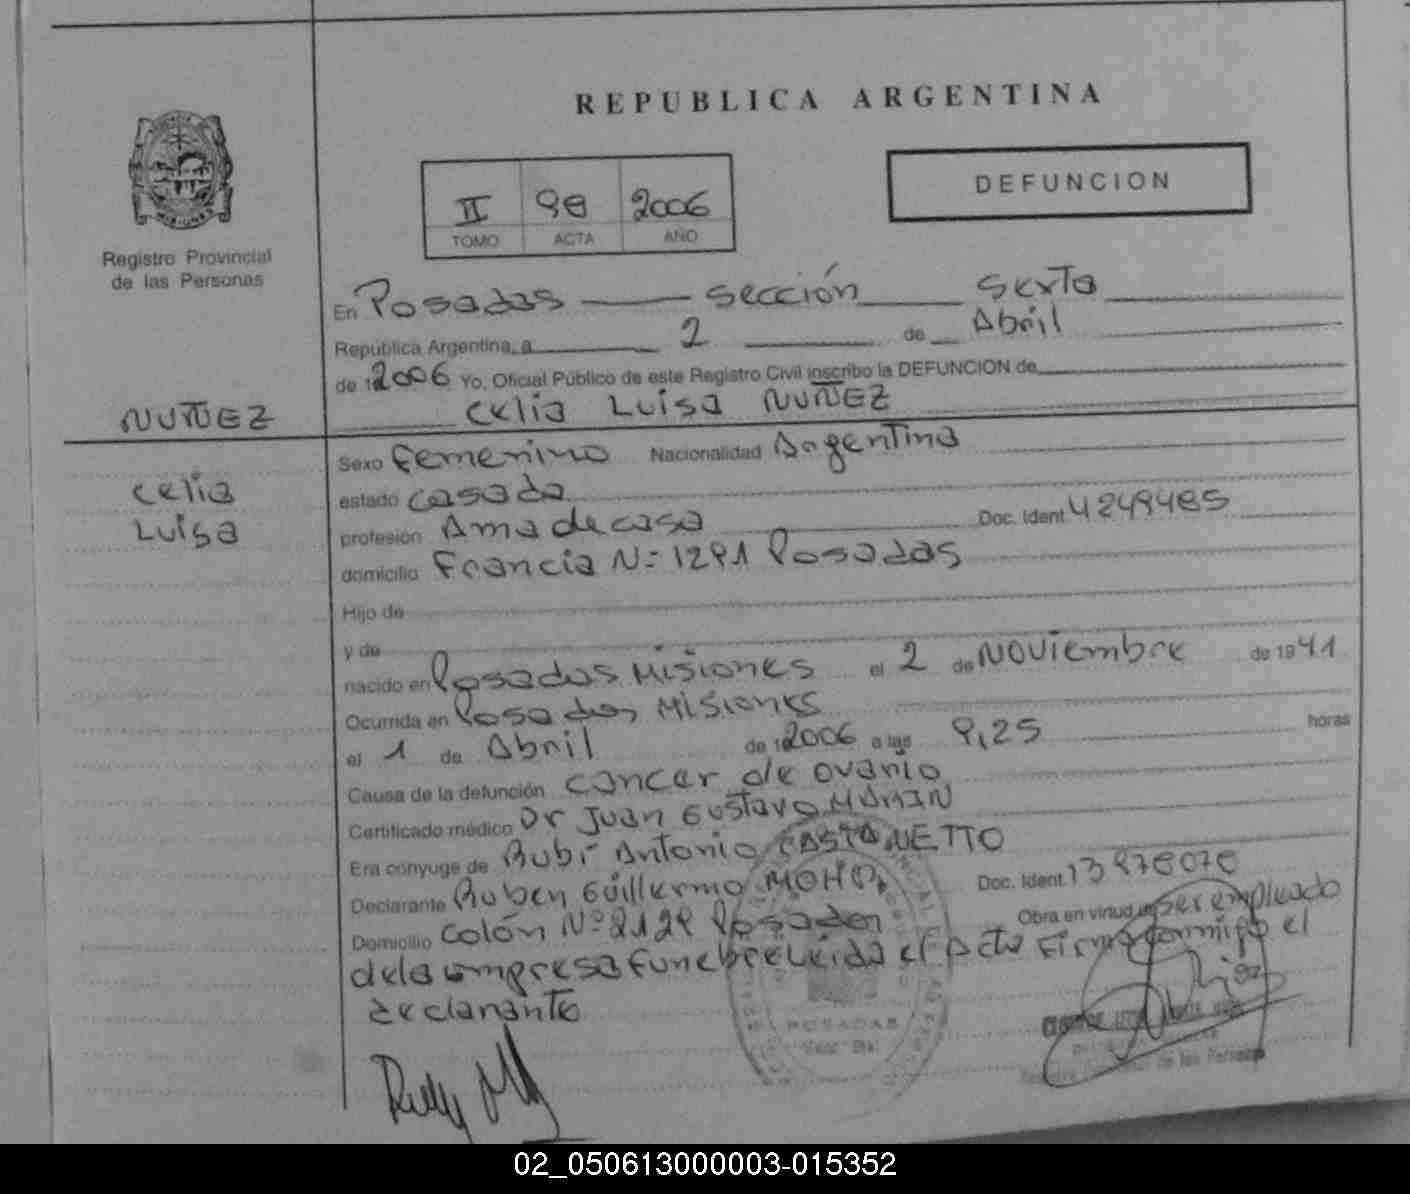 REPUBLICA ARGENTINA
DEFUNCION
II 98 2006
TOMO ACTA AÑO
MISIONES
Registro Provincial
de las Personas
En Posadas sección sexta
República Argentina, a 2 de Abril
de 2006 Yo, Oficial Público de este Registro Civil inscribo la DEFUNCION de
NUÑEZ
Celia Luisa NUÑEZ
Celia
Luisa
Sexo Femenino Nacionalidad Argentina
estado casada
profesión Ama de casa Doc. Ident 4249485
domicilio Francia Nº 1291 Posadas
Hijo de
y de
nacido en Posadas Misiones el 2 de Noviembre de 1941
Ocurrida en Posadas Misiones
el 1 de Abril de 2006 a las 9,25 horas
Causa de la defunción cancer de ovario
Certificado médico Dr Juan Gustavo MARIN
Era cónyuge de Rubi Antonio CASTANETTO
Declarante Ruben Guillermo Doc. Ident. 13878070
Domicilio Colón Nº 2129 Posadas Obra en virtud de ser empleado
de la empresa funebre Leida el Acta Firma conmigo el
declarante
POSADAS
02_050613000003-015352